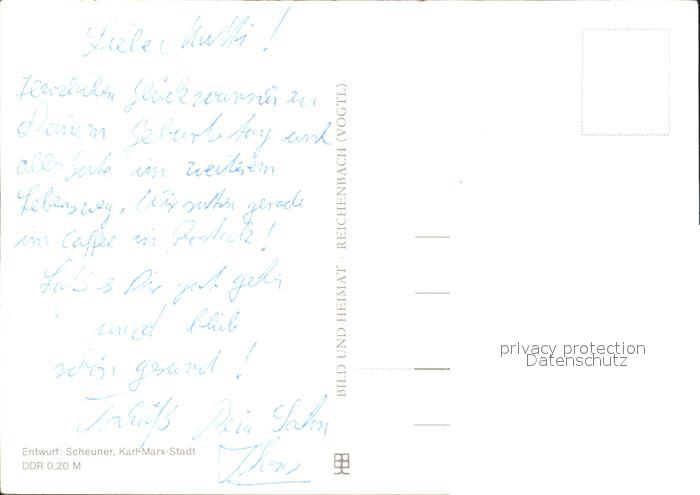 Liebe Mutti!
Herzlichen Glückwunsch zu
Deinem Geburtstag und
alles Gute im weiterem
Lebensweg. Wir sitzen gerade
im Caffee in Rostock!
Laß es Dir gut gehn
und bleib
schön gesund!
Tschüß Dein Sohn
Entwurf: Scheuner, Karl-Marx-Stadt
DDR 0,20 M
BILD UND HEIMAT · REICHENBACH (VOGTL)
privacy protection
Datenschutz